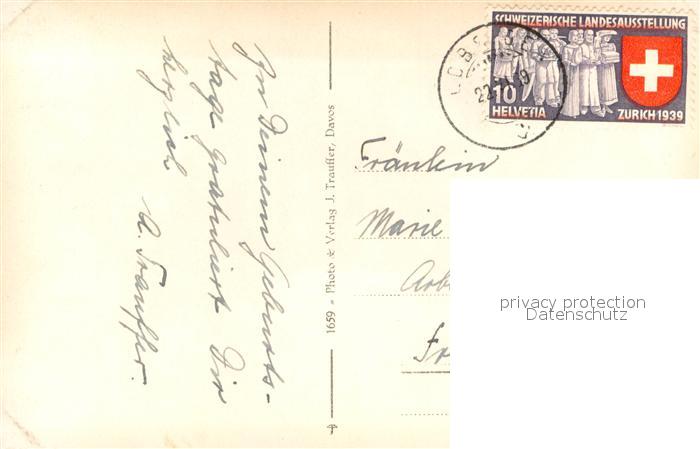 Zu Deinem Geburts-
tage gratuliert Dir
herzlich
A. Trauffer.
1659 - Photo & Verlag J. Trauffer, Davos
SCHWEIZERISCHE LANDESAUSSTELLUNG
10
HELVETIA
ZURICH 1939
Fräulein
Marie
privacy protection
Datenschutz